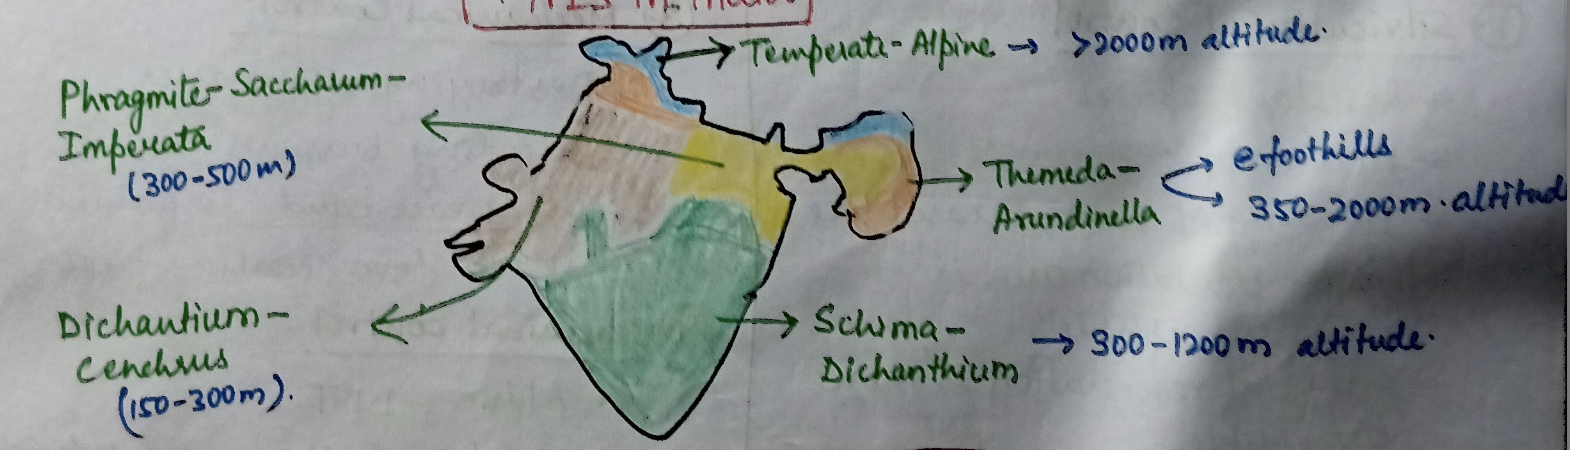 Temperate-Alpine → >2000m altitude.
Phragmite-Saccharum-
Imperata
(300-500m)
Themeda-
Arundinella
e foothills
350-2000m. altitud
Dichantium-
Cenchrus
(150-300m).
Schima-
Dichanthium
→ 300-1200m altitude.